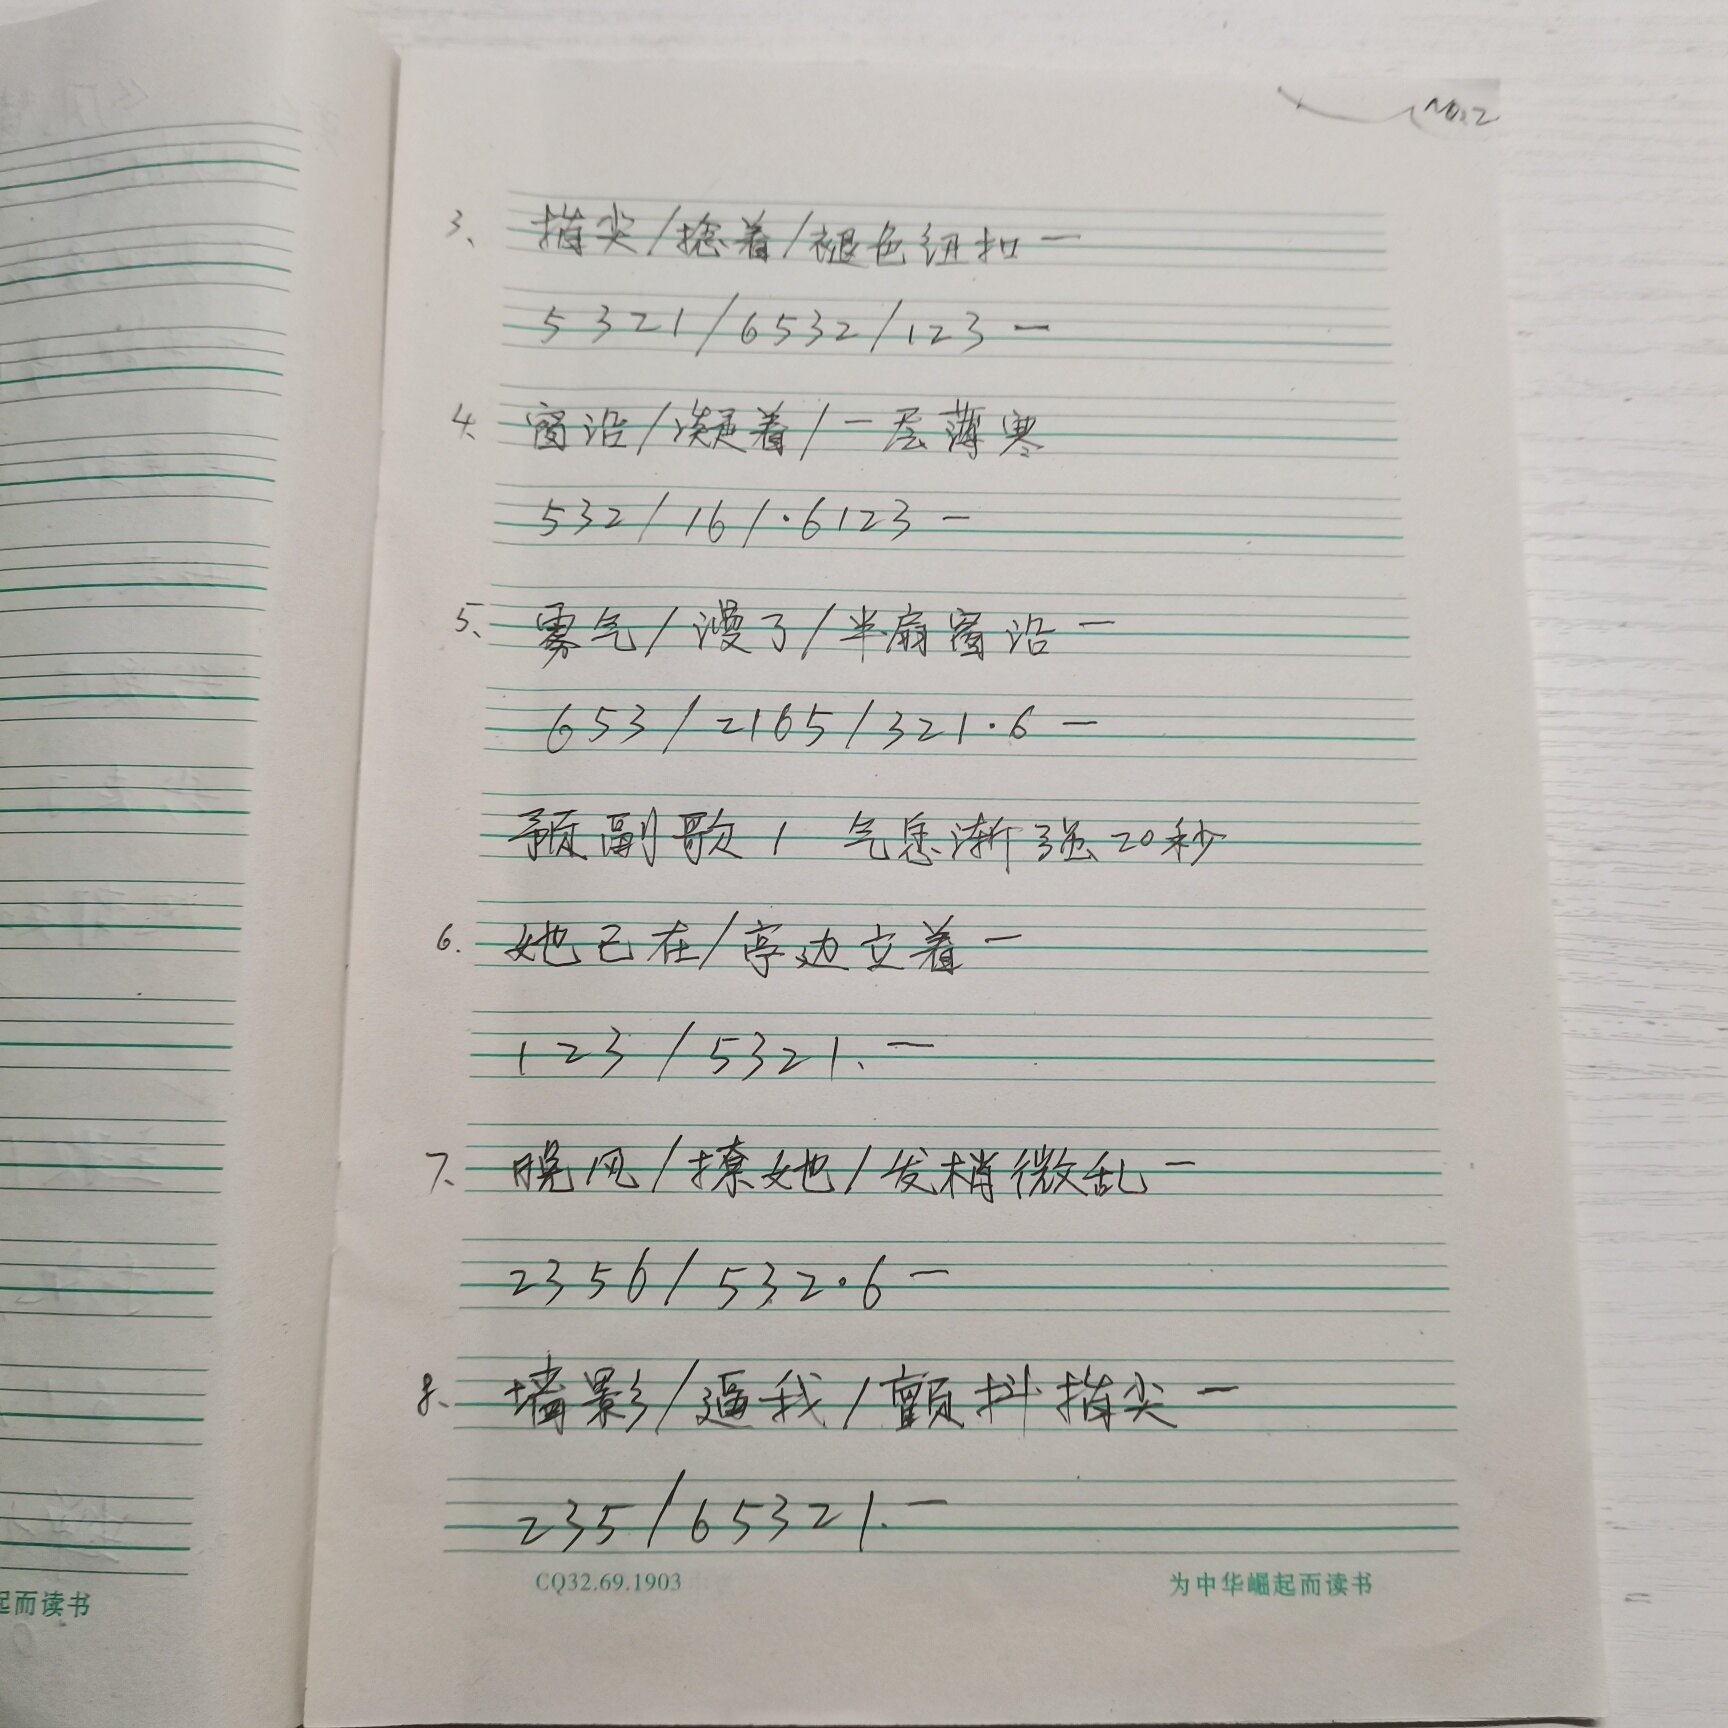 No.2
3、指尖/捻着/褪色纽扣一
5321/6532/123一
4、窗沿/凝着/一层薄寒
532/16/·6123一
5、雾气/漫了/半扇窗沿一
653/2165/321·6一
预副歌1 气息渐强20秒
6. 她已在/亭边立着一
123/5321.一
7、晚风/撩她/发梢微乱一
2356/532·6一
8、墙影/逼我/颤抖指尖一
235/65321.一
CQ32.69.1903 为中华崛起而读书
起而读书